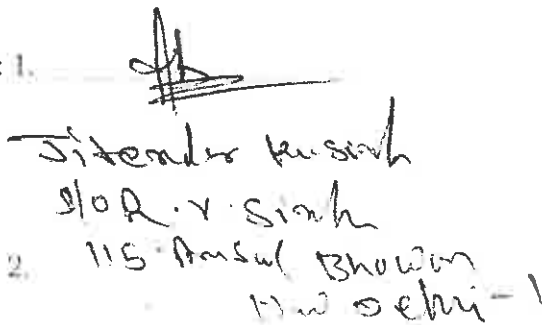 1.
Jitender Ku Sinh
S/O R. V. Sinh
2. 115 Ansal Bhowan
N w Delhi - 1